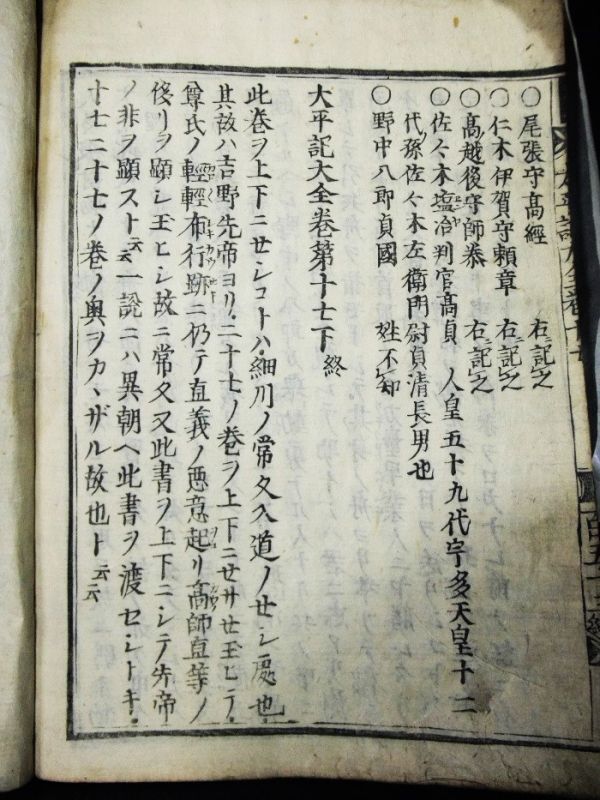 ○尾張守高経　右ニ記之
○仁木伊賀守頼章　右ニ記之
○高越後守師泰　右ニ記之
○佐々木塩冶判官高貞　人皇五十九代宇多天皇十二
代ノ孫佐々木左衛門尉貞清長男也
○野中八郎貞國　姓不知
大平記大全巻第十七下終
此巻ヲ上下ニセシコトハ細川ノ常久入道ノセシ処也
其故ハ吉野先帝ヨリ二十七ノ巻ヲ上下ニセサセ玉ヒテ
尊氏ノ軽軽布行跡ニ仍テ直義ノ悪意起リ高師直等ノ
侈リヲ顕シ玉ヒシ故ニ常久又此書ヲ上下ニシテ先帝
ノ非ヲ顕スト云云一説ニハ異朝ヘ此書ヲ渡セシトキ
十七二十七ノ巻ノ奥ヲカヽザル故也ト云云